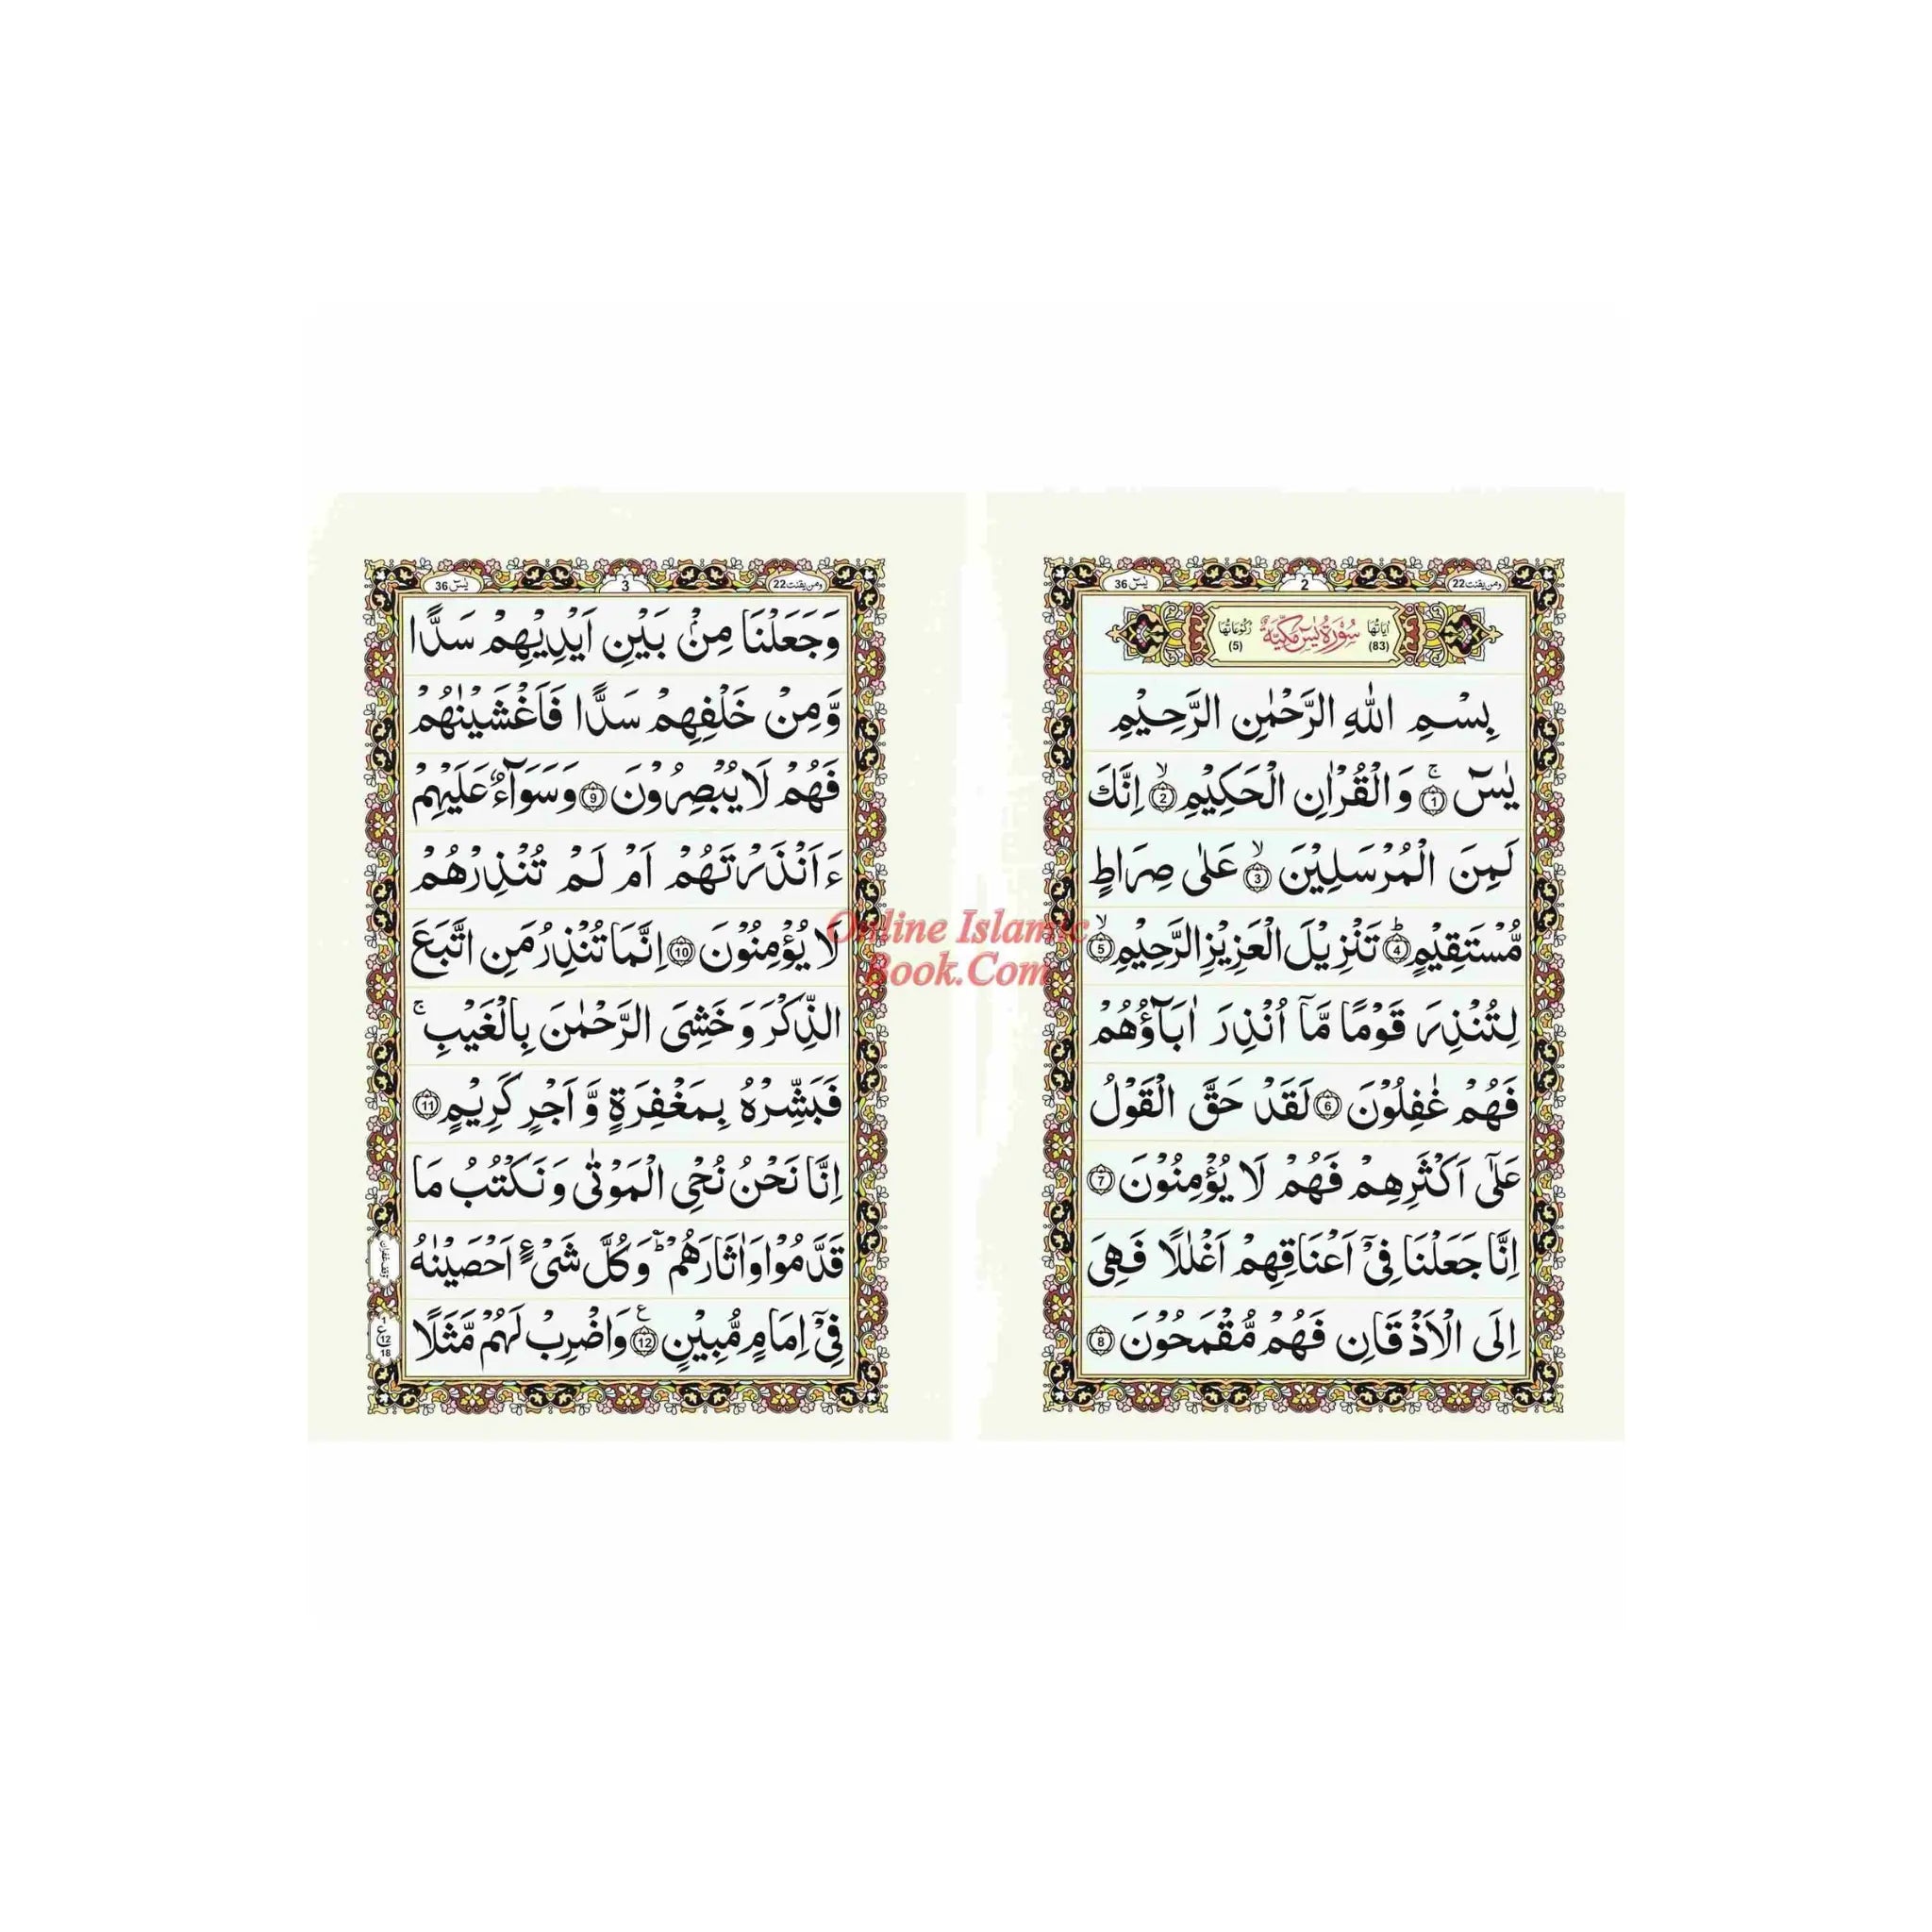 ومن یقنت22
2
یٰسٓ 36
اٰیَاتُهَا (83)
سُوْرَةُ یٰسٓ مَكِّیَّةٌ
رُكُوْعَاتُهَا (5)
بِسْمِ اللّٰهِ الرَّحْمٰنِ الرَّحِیْمِ
یٰسٓ ۚ﴿1﴾ وَ الْقُرْاٰنِ الْحَكِیْمِ ۙ﴿2﴾ اِنَّكَ
لَمِنَ الْمُرْسَلِیْنَ ۙ﴿3﴾ عَلٰی صِرَاطٍ
مُّسْتَقِیْمٍ ؕ﴿4﴾ تَنْزِیْلَ الْعَزِیْزِ الرَّحِیْمِ ۙ﴿5﴾
لِتُنْذِرَ قَوْمًا مَّاۤ اُنْذِرَ اٰبَآؤُهُمْ
فَهُمْ غٰفِلُوْنَ ﴿6﴾ لَقَدْ حَقَّ الْقَوْلُ
عَلٰۤی اَكْثَرِهِمْ فَهُمْ لَا یُؤْمِنُوْنَ ﴿7﴾
اِنَّا جَعَلْنَا فِیْۤ اَعْنَاقِهِمْ اَغْلٰلًا فَهِیَ
اِلَی الْاَذْقَانِ فَهُمْ مُّقْمَحُوْنَ ﴿8﴾
ومن یقنت22
3
یٰسٓ 36
وَ جَعَلْنَا مِنْۢ بَیْنِ اَیْدِیْهِمْ سَدًّا
وَّ مِنْ خَلْفِهِمْ سَدًّا فَاَغْشَیْنٰهُمْ
فَهُمْ لَا یُبْصِرُوْنَ ﴿9﴾ وَ سَوَآءٌ عَلَیْهِمْ
ءَاَنْذَرْتَهُمْ اَمْ لَمْ تُنْذِرْهُمْ
لَا یُؤْمِنُوْنَ ﴿10﴾ اِنَّمَا تُنْذِرُ مَنِ اتَّبَعَ
الذِّكْرَ وَ خَشِیَ الرَّحْمٰنَ بِالْغَیْبِ ۚ
فَبَشِّرْهُ بِمَغْفِرَةٍ وَّ اَجْرٍ كَرِیْمٍ ﴿11﴾
اِنَّا نَحْنُ نُحْیِ الْمَوْتٰی وَ نَكْتُبُ مَا
قَدَّمُوْا وَ اٰثَارَهُمْ ؕ وَ كُلَّ شَیْءٍ اَحْصَیْنٰهُ
فِیْۤ اِمَامٍ مُّبِیْنٍ ۠﴿12﴾ وَ اضْرِبْ لَهُمْ مَّثَلًا
وقف غفران
1
ع
12
18
Online Islamic
Book.Com